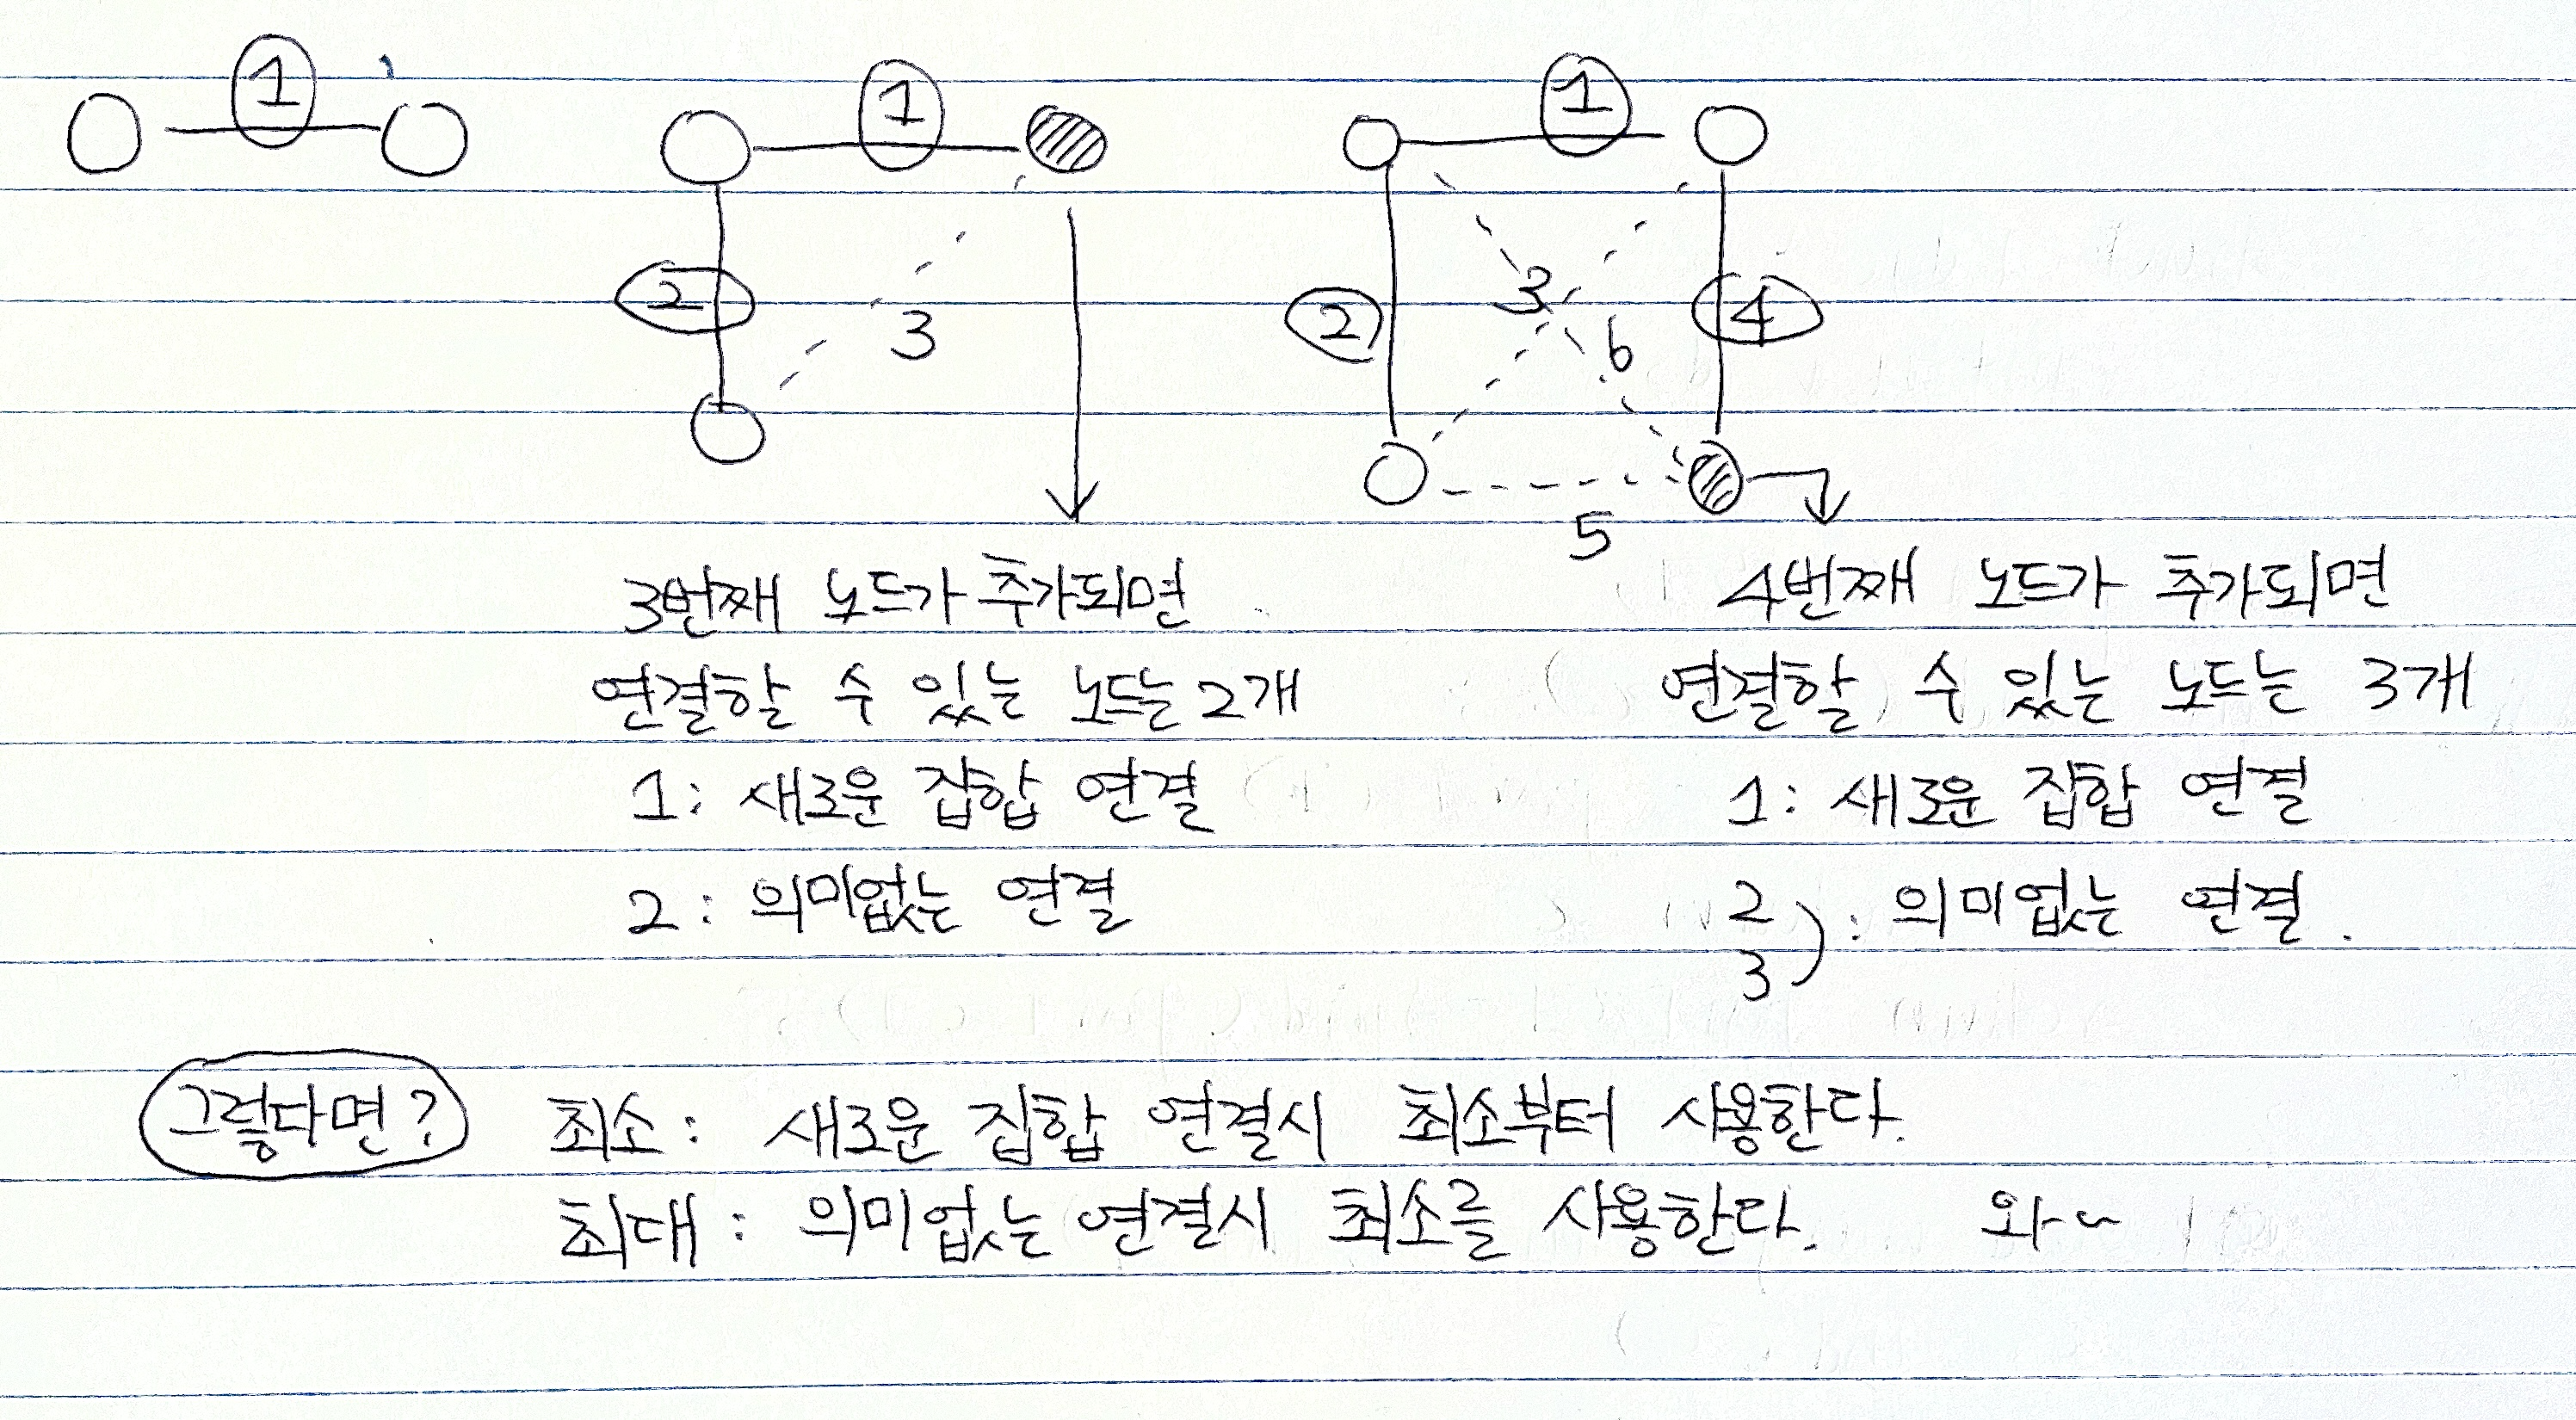 1
1
1
2
3
2
3
4
6
5
3번째 노드가 추가되면
연결할 수 있는 노드는 2개
1: 새로운 집합 연결
2: 의미없는 연결
4번째 노드가 추가되면
연결할 수 있는 노드는 3개
1: 새로운 집합 연결
2
3): 의미없는 연결.
그렇다면?
최소: 새로운 집합 연결시 최소부터 사용한다.
최대: 의미없는 연결시 최소를 사용한다. 와~~